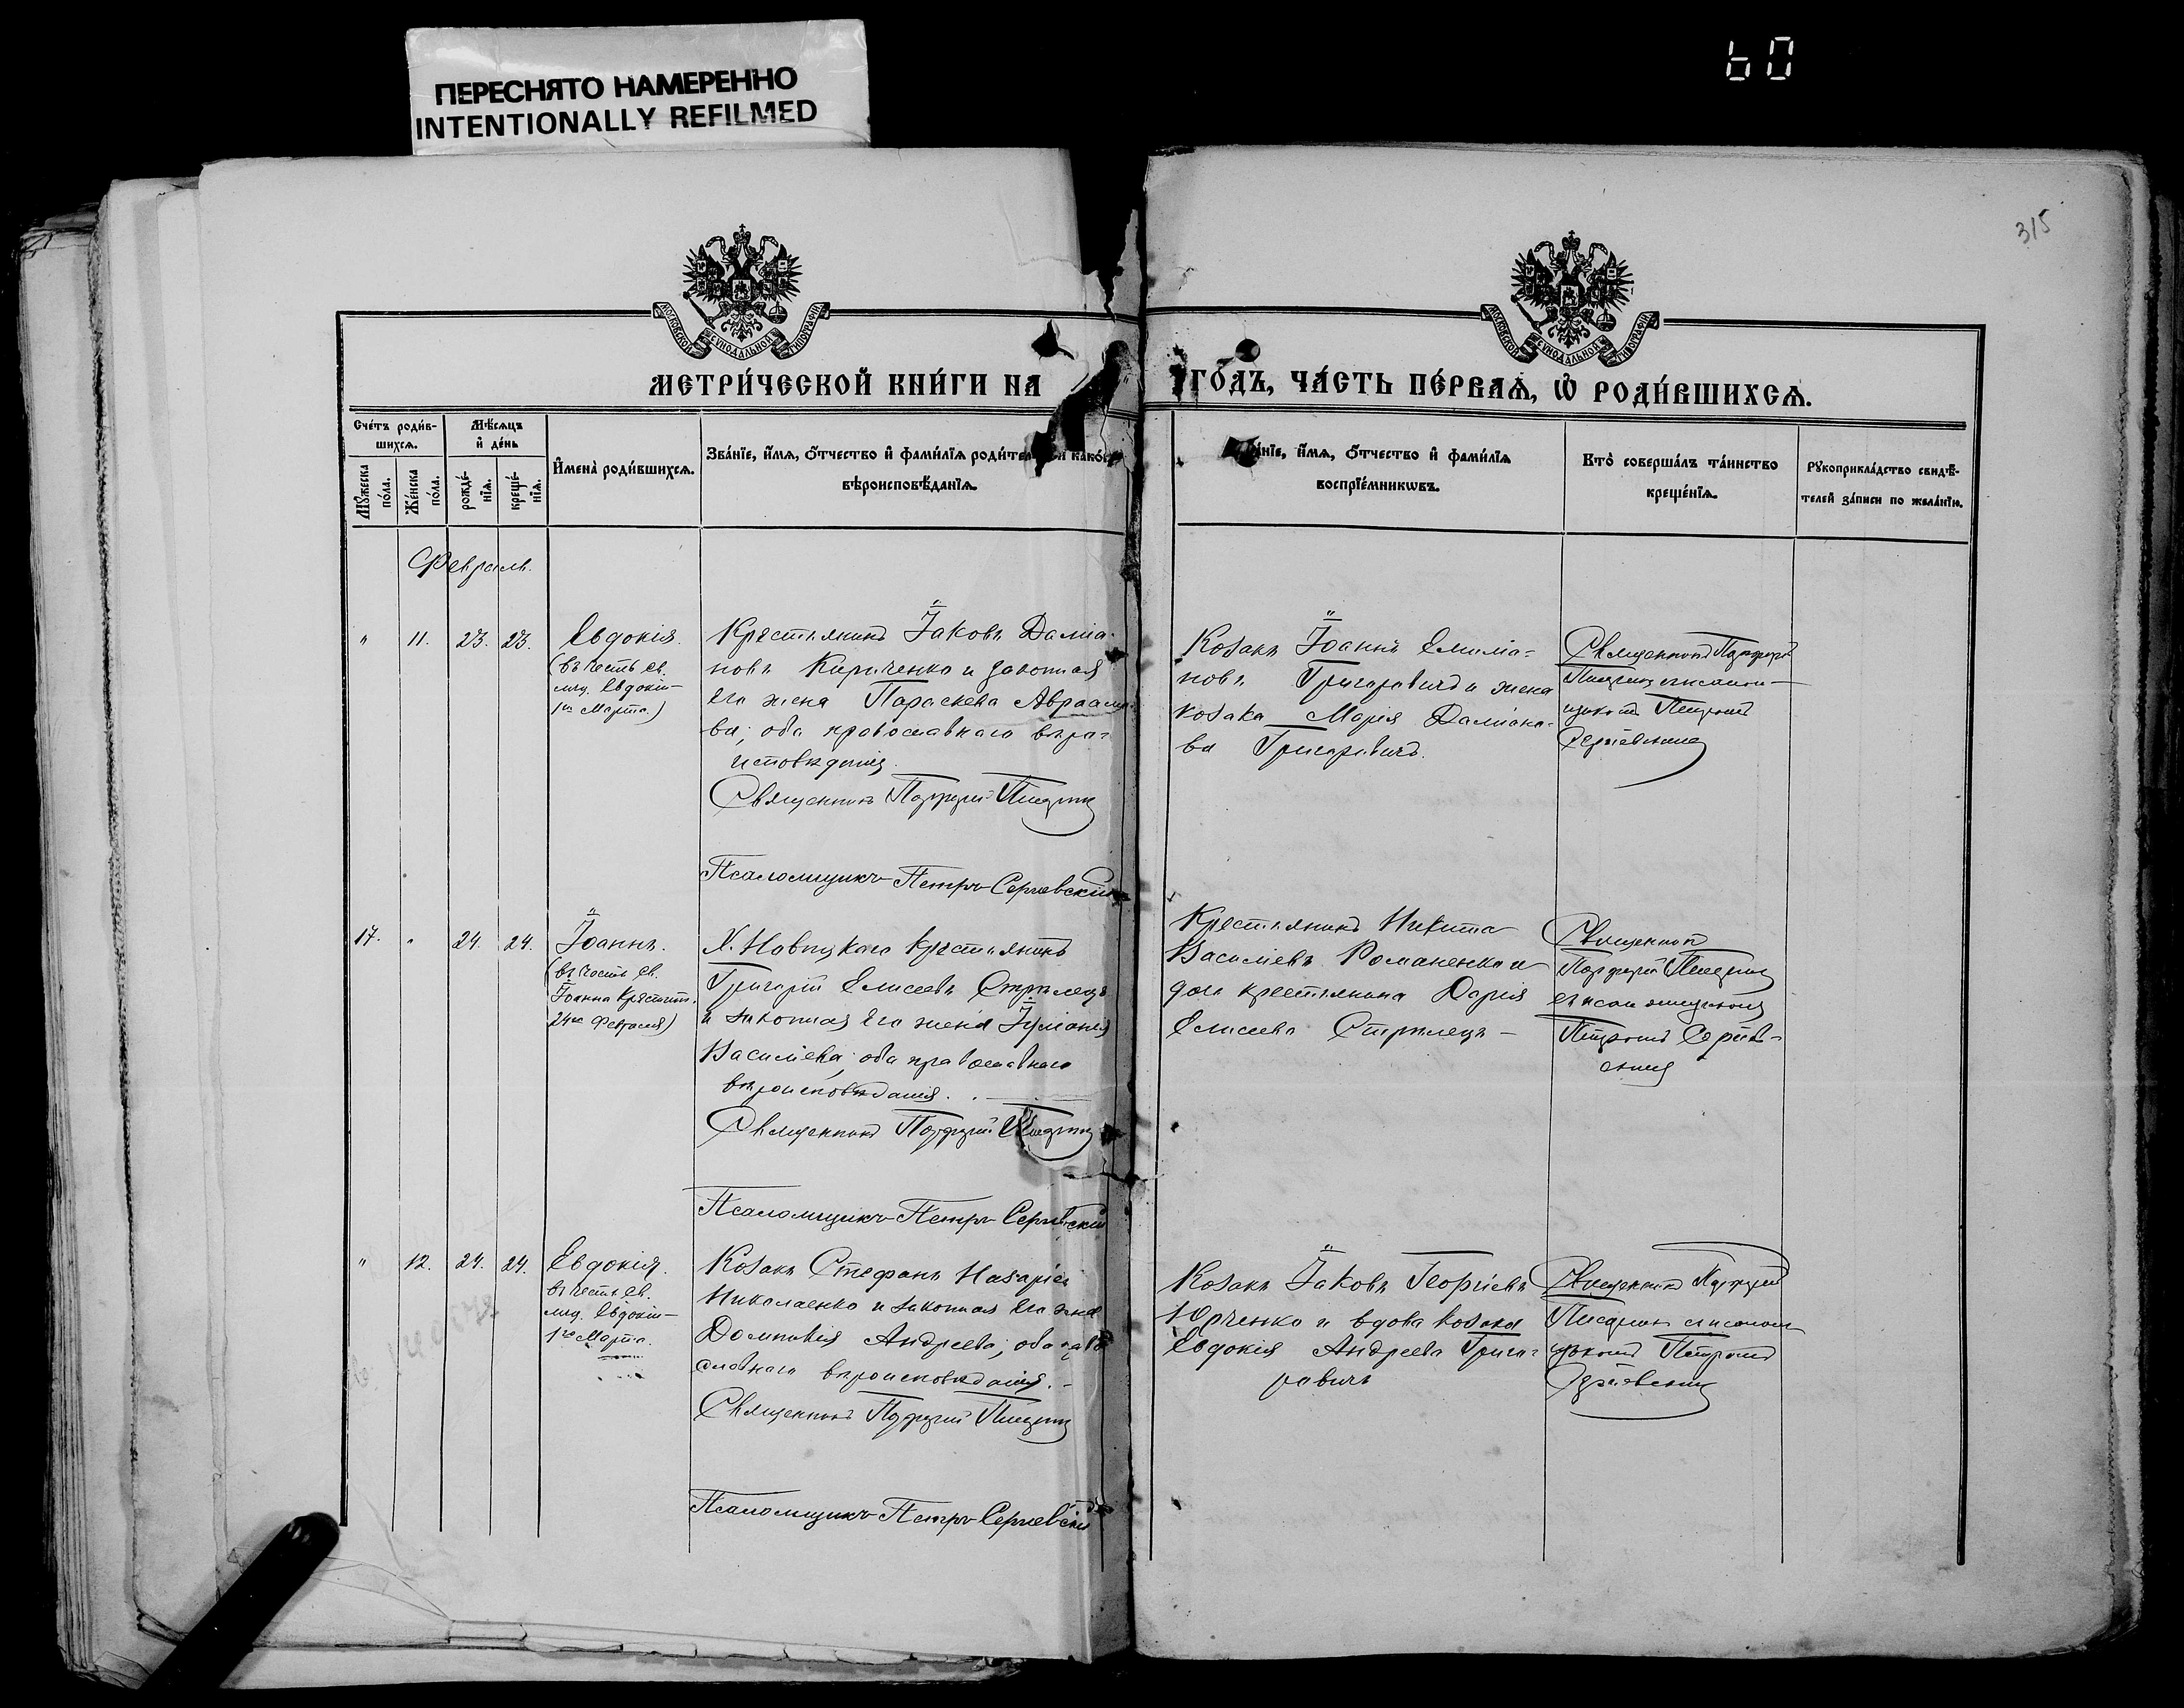 ПЕРЕСНЯТО НАМЕРЕННО
INTENTIONALLY REFILMED
60
315
МОСКОВСКОЙ СѴНОДАЛЬНОЙ ТИПОГРАФІИ
МОСКОВСКОЙ СѴНОДАЛЬНОЙ ТИПОГРАФІИ
МЕТРИ́ЧЕСКОЙ КНИ́ГИ НА
ГО́ДЪ, ЧА́СТЬ ПЕ́РВАѦ, Ѡ РОДИ́ВШИХСѦ.
Сче́тъ роди́в-
шихсѧ.
Мѣ́сѧцъ
и҆ де́нь
Мꙋ́жеска
по́ла.
Же́нска
по́ла.
рожде́-
нїѧ.
креще́-
нїѧ.
И҆мена̀ роди́вшихсѧ.
Зва́нїе, и҆́мѧ, ѻ҆́тчество и҆ фами́лїѧ
вѣроисповѣ́данїѧ.
и҆́мѧ, ѻ҆́тчество и҆ фами́лїѧ
воспрїе́мникѡвъ.
Кто̀ соверша́лъ та́инство
креще́нїѧ.
Рꙋкоприкла́дство свидѣ́-
телей за́писи по жела́нїю.
Февраль.
" 11. 23. 23.
Евдокія.
(въ честь св.
мц. Евдокіи —
1го Марта)
Крестьянинъ Іаковъ Даміа-
новъ Кириченко и законная
его жена Параскева Авраамо-
ва; оба православнаго вѣро-
исповѣданія.
Священникъ Порфирій
Псаломщикъ Петръ Сергіевскій
Козакъ Іоаннъ Емиліа-
новъ Григоровичъ и жена
козака Марія Даміано-
ва Григоровичъ.
Священникъ Порфирій
съ псалом-
щикомъ Петромъ
Сергіевскимъ
17. " 24. 24.
Іоаннъ.
(въ честь св.
Іоанна Крестит.
24го Февраля)
Х. Новицкаго Крестьянинъ
Григорій Елисеевъ Стрѣлецъ
и законная его жена Іуліанія
Василіева, оба православнаго
вѣроисповѣданія.
Священникъ Порфирій
Псаломщикъ Петръ Сергіевскій
Крестьянинъ Никита
Василіевъ Романенко и
дочь крестьянина Дарія
Елисеева Стрѣлецъ —
Священникъ
Порфирій
съ псаломщикомъ
Петромъ Сергіев-
скимъ
" 12. 24. 24.
Евдокія.
въ честь св.
мц. Евдокіи —
1го Марта.
Козакъ Стефанъ Назаріев
Николаенко и законная его жена
Домникія Андреева; оба право
славнаго вѣроисповѣданія. —
Священникъ Порфирій
Псаломщикъ Петръ Сергіевскій
Козакъ Іаковъ Георгіевъ
Юрченко и вдова козака
Евдокія Андреева Григо-
ровичъ
Священникъ Порфирій
съ псалом-
щикомъ Петромъ
Сергіевскимъ